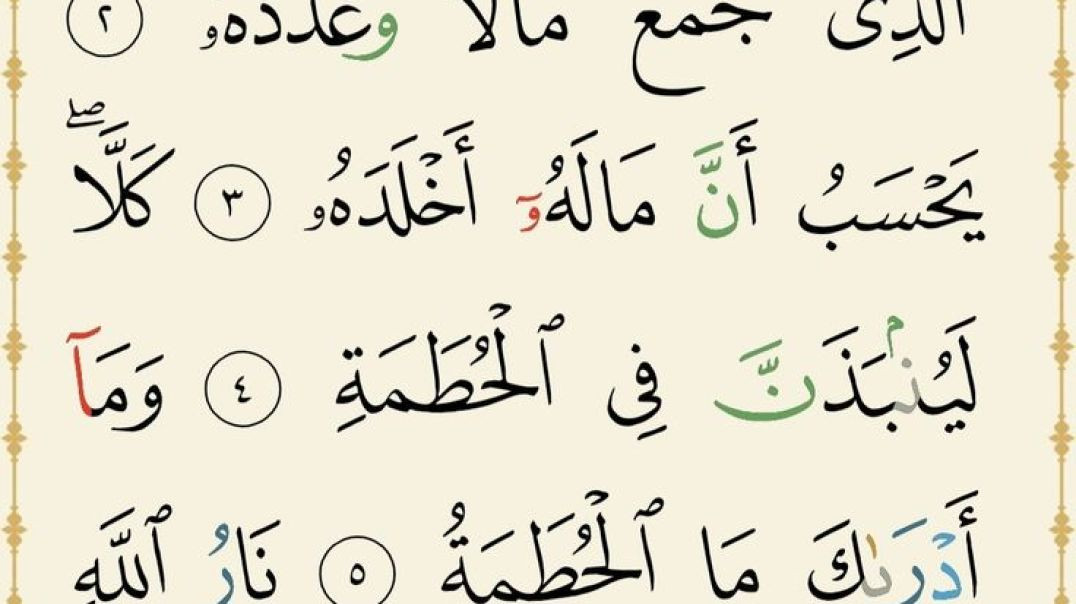 ٱلَّذِى جَمَعَ مَالًا وَعَدَّدَهُۥ ٢
يَحْسَبُ أَنَّ مَالَهُۥٓ أَخْلَدَهُۥ ٣ كَلَّاۖ
لَيُنۢبَذَنَّ فِى ٱلْحُطَمَةِ ٤ وَمَآ
أَدْرَىٰكَ مَا ٱلْحُطَمَةُ ٥ نَارُ ٱللَّهِ